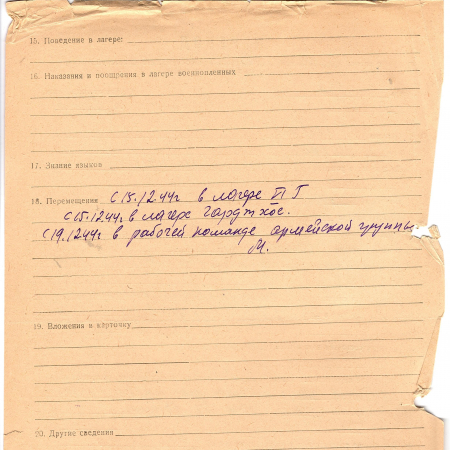 15. Поведение в лагере:
16. Наказания и поощрения в лагере военнопленных
17. Знание языков
18. Перемещения С 15.12.44г в лагере П Г
С 15.12.44г в лагере Гардтхос.
С 19.12.44г в рабочей команде армейской группы
М.
19. Вложения в карточку
20. Другие сведения